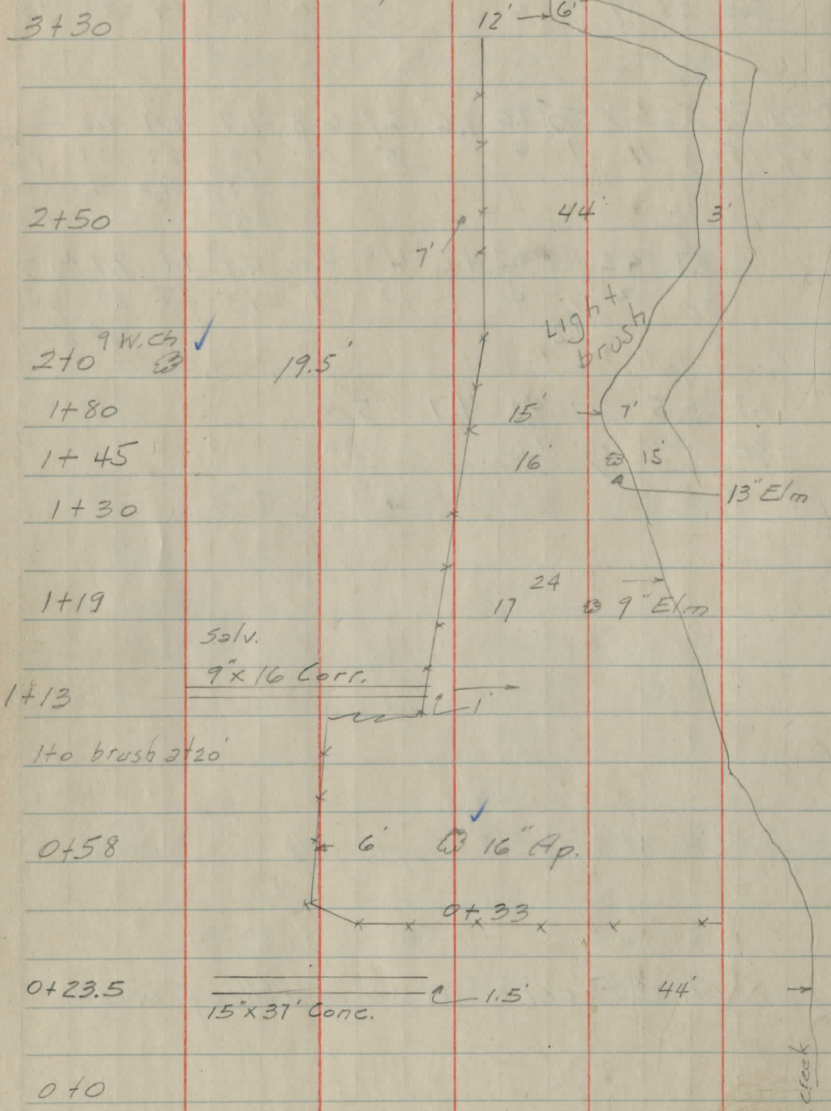 3+30 12' 6'
2+50 44' 3'
7'
Light
brush
9 W.ch
2+0 19.5'
1+80 15' 7'
1+45 16' 15'
13" Elm
1+30
24
1+19 17 9" Elm
Salv.
9" x 16 Corr.
1+13 1'
1+0 brush at 20'
0+58 6' 16" Ap.
0+33
0+23.5 1.5' 44'
15" x 37' Conc.
creek
0+0